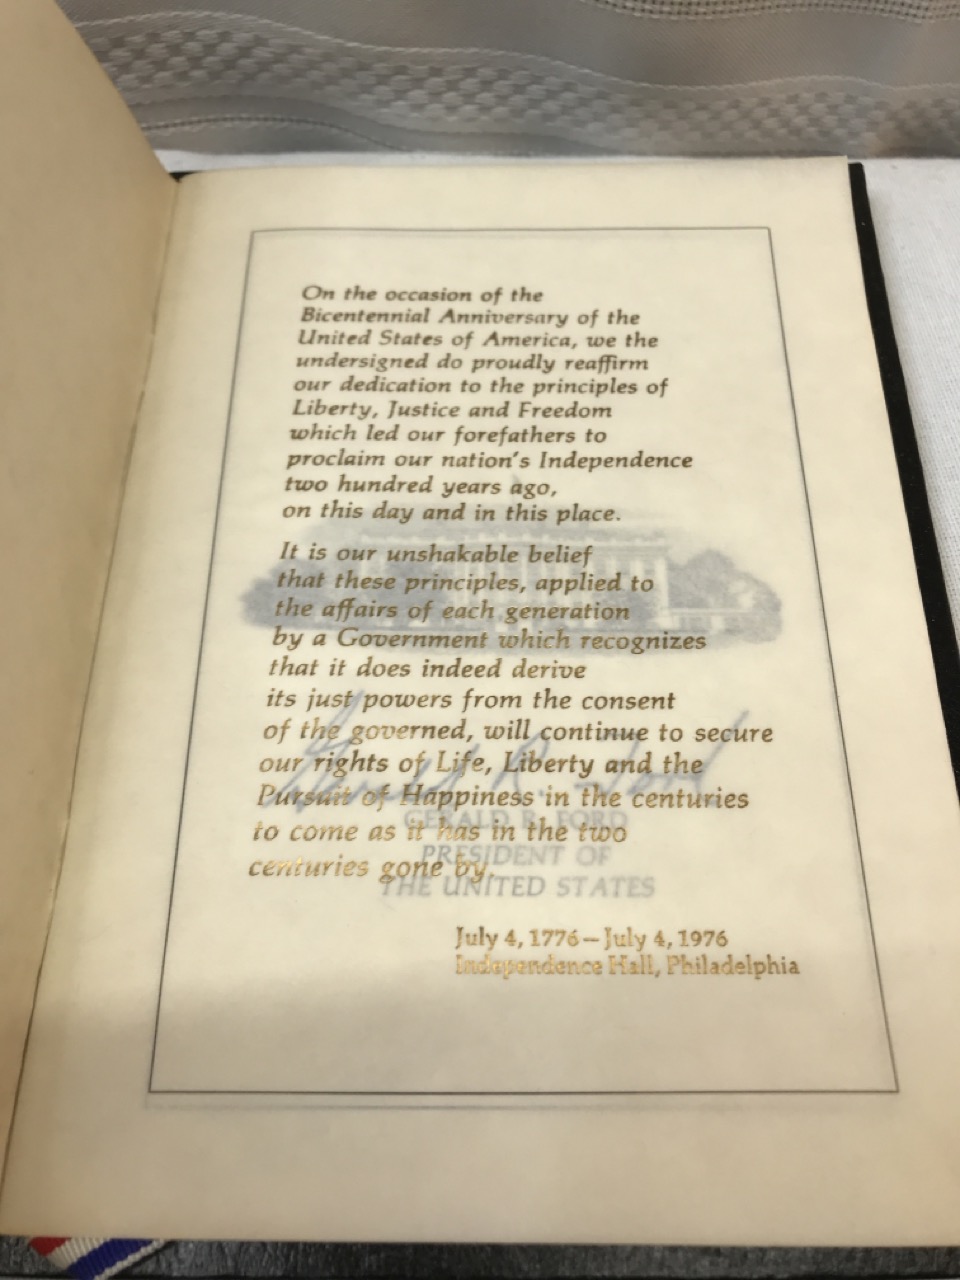 On the occasion of the
Bicentennial Anniversary of the
United States of America, we the
undersigned do proudly reaffirm
our dedication to the principles of
Liberty, Justice and Freedom
which led our forefathers to
proclaim our nation's Independence
two hundred years ago,
on this day and in this place.
It is our unshakable belief
that these principles, applied to
the affairs of each generation
by a Government which recognizes
that it does indeed derive
its just powers from the consent
of the governed, will continue to secure
our rights of Life, Liberty and the
Pursuit of Happiness in the centuries
to come as it has in the two
centuries gone by.
Gerald R. Ford
GERALD R. FORD
PRESIDENT OF
THE UNITED STATES
July 4, 1776–July 4, 1976
Independence Hall, Philadelphia